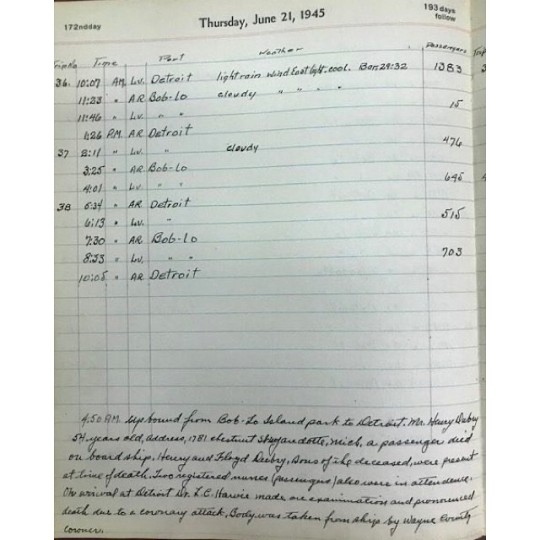 172ndday Thursday, June 21, 1945 193 days follow
Trip No Time Port Weather Passengers
36. 10:07 AM Lv. Detroit light rain Wind East light. cool. Bar. 29:32 1383
11:23 " AR Bob-Lo cloudy " " " "
11:46 " Lv. " " 15
1:26 P.M. AR Detroit
37 2:11 " Lv. " cloudy 476
3:25 " AR Bob-Lo
4:01 " Lv. " " 645
38 5:34 " AR Detroit
6:13 " Lv. " 515
7:30 " AR Bob-Lo
8:33 " Lv. " " 703
10:05 " AR Detroit
4:50 A.M. Up bound from Bob-Lo Island park to Detroit. Mr. Henry Dasby
54, years old, address, 1781 chestnut St Wyandotte, Mich, a passenger died
on board ship. Henry and Floyd Dasby, Sons of the deceased, were present
at time of death. Two registered nurses (passengers) also were in attendence.
On arrival at Detroit Dr. L. E. Harvie made an examination and pronounced
death due to a coronary attack. Body was taken from ship by Wayne County
Coroner.